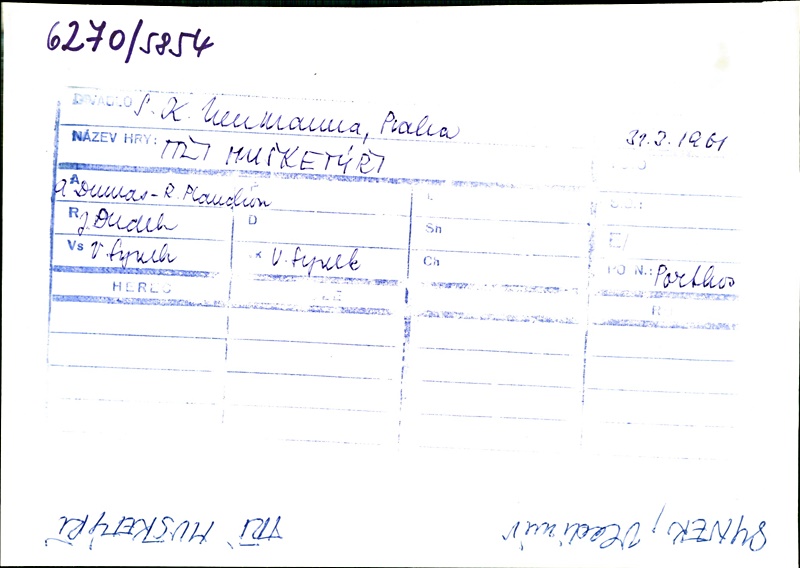 6270/5854
DIVADLO S. K. Neumanna, Praha
31.3.1961
NÁZEV HRY: TŘI MUŠKETÝŘI
A A Dumas - R. Planchon
R J Dudek D Sh
Vs V. Synek K V. Synek Ch PO N.: Porthos
HEREC R
TŘI MUŠKETÝŘI SYNEK, Vladimír